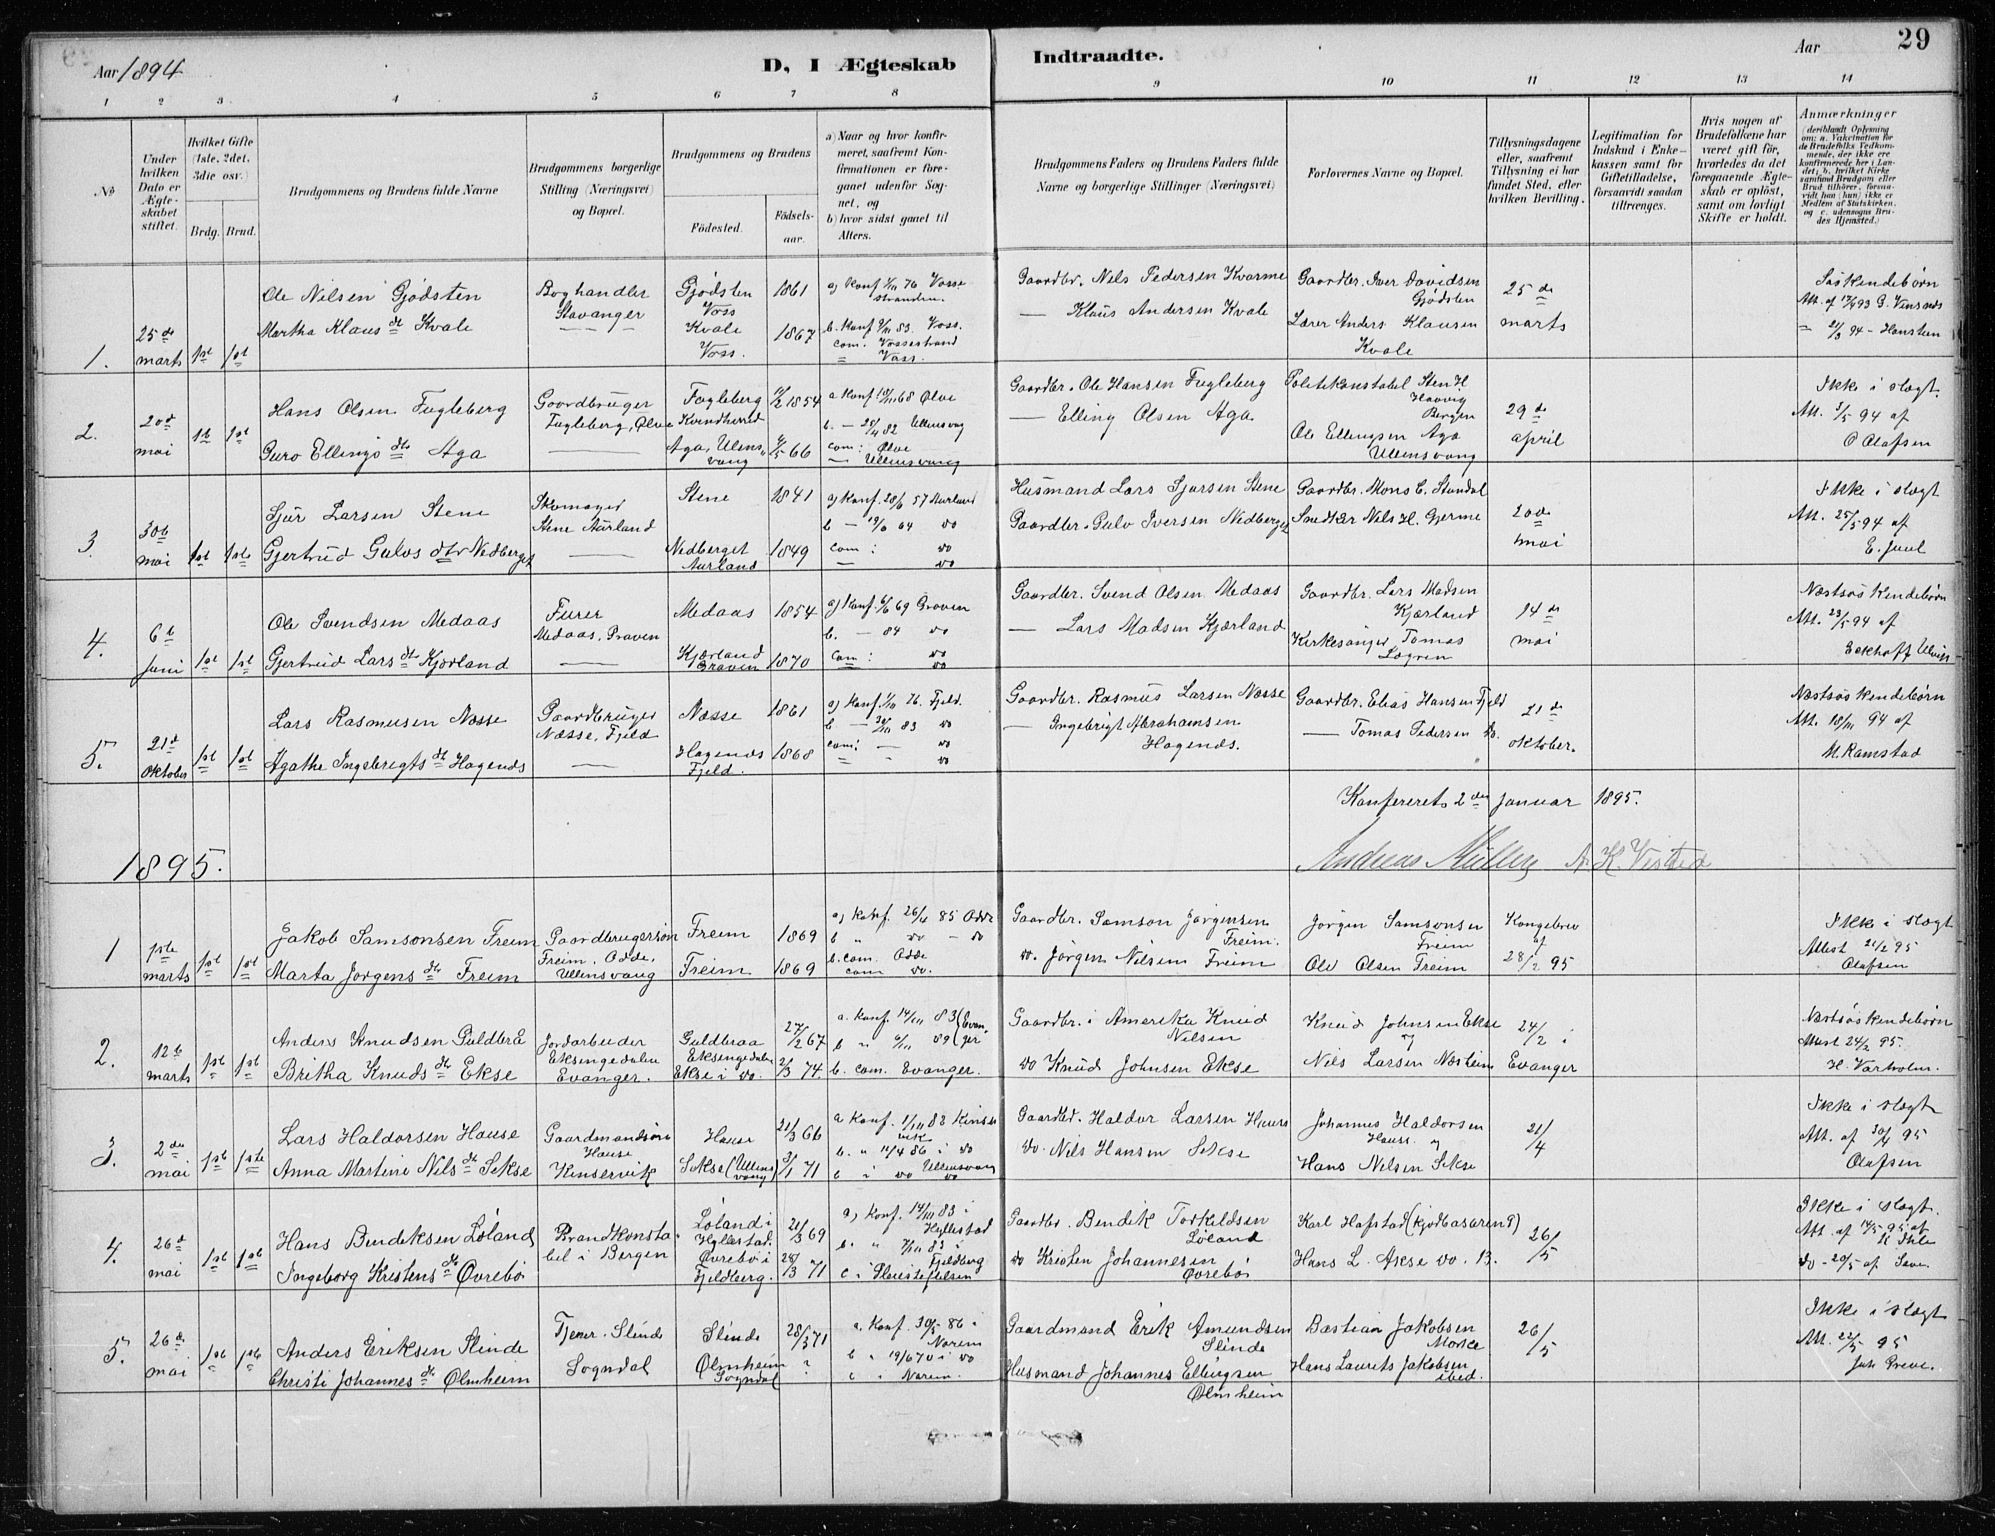 Aar 1894
D, I Ægteskab
Indtraadte.
Aar
29
1 2 3 4 5 6 7 8 9 10 11 12 13 14
No
Under hvilken Dato er Ægteskabet stiftet.
Hvilket Gifte (1ste, 2det, 3die osv.)
Brdg. Brud.
Brudgommens og Brudens fulde Navne
Brudgommens borgerlige Stilling (Næringsvei) og Bopæl.
Brudgommens og Brudens
Fødested.
Fødsels-aar.
a) Naar og hvor konfirmeret, saafremt Konfirmationen er foregaaet udenfor Sognet, og
b) hvor sidst gaaet til Alters.
Brudgommens Faders og Brudens Faders fulde Navne og borgerlige Stillinger (Næringsvei)
Forlovernes Navne og Bopæl.
Tillysningsdagene eller, saafremt Tillysning ei har fundet Sted, efter hvilken Bevilling.
Legitimation for Indskud i Enkekassen samt for Giftetilladelse, forsaavidt saadan tiltrænges.
Hvis nogen af Brudefolkene har været gift før, hvorledes da det foregaaende Ægteskab er opløst, samt om lovligt Skifte er holdt.
Anmærkninger
(deriblandt Oplysning om: a. Vakcination for de Brudefolks Vedkommende, der ikke ere konfirmerede her i Landet; b. hvilket Kirkesamfund Brudgom eller Brud tilhører, forsaavidt han (hun) ikke er Medlem af Statskirken, og c. udensogns Brudes Hjemsted.)
1. 25de marts 1st 1st
Ole Nilsen Gjødsten
Martha Klausdt Kvale
Boghandler Stavanger
Gjødsten Voss 1861
Kvale Voss. 1867
a) Konf 1/11 76 Vossestranden.
b. Konf 1/11 83. Voss.
com. Vossestrand
" Voss.
Gaardbr. Nils Pedersen Kvarme
— Klaus Andersen Kvale
Gaardbr. Iver Davidsen Gjødsten
Lærer Anders Klausen Kvale
25de marts
Søskendebørn
2. 20d mai 1st 1st
Hans Olsen Fugleberg
Guro Ellingsdtr Aga
Gaardbruger Fugleberg, Ølve
Fugleberg Kvindherred 1854
Aga, Ullensvang 66
com: Ølve
— Ullensvang
Gaardbr. Ole Hansen Fugleberg
— Elling Olsen Aga
Politikonstabel Sten H. Haavig Bergen
Ole Ellingsen Aga Ullensvang
29de april
Ikke i slægt.
Att. 3/5 94 af O Olafsen
3. 30te mai 1st 1ste
Sjur Larsen Stene
Gjertrud Gulvsdtr Nedberget
Skomager Stene Aurland
Stene 1841
Nedberget Aurland 1849
com: do
— do
Husmand Lars Sjursen Stene
Gaardbr. Gulv Iversen Nedberget
Gaardbr. Mons E. Stundal
Snedker Nils H. Gjerme
20de mai
Ikke i slægt
Att. 25/5 94 af E. Juul
4. 6te Juni 1st 1st
Ole Svendsen Medaas
Gjertrud Larsdt Kjærland
Furer Medaas, Graven
Medaas 1854
Kjærland Graven 1870
a) Konf. 6/6 69 Graven
b. — 84 do
com: do
do
Gaardbr. Svend Olsen Medaas
— Lars Madsen Kjærland
Gaardbr. Lars Madsen Kjærland
Kirkesanger Tomas Løgren
14de mai
Næstsøskendebørn
Att. 23/5 94 af Eckhoff
5. 21d Oktober 1st 1st
Lars Rasmusen Næsse
Agathe Ingebrigtsdt Hagenæs
Gaardbruger Næsse, Fjeld
Næsse 1861
Hagenæs Fjeld. 1868
a) Konf. 1/10 76. Fjeld.
b — 83 do
com: — do
" do
Gaardbr. Rasmus Larsen Næsse
— Ingebrigt Abrahamsen Hagenæs.
Gaardbr. Elias Hansen Fjeld
— Tomas Pedersen do.
21de oktober.
Næstsøskendebørn
Att. 18/11 94 af M. Ramstad
Konfereret 2den januar 1895.
Andreas Müller
K. Visted
1895.
1 1ste marts 1st 1st
Jakob Samsonsen Freim
Marta Jørgensdtr Freim
Gaardbrugersøn Freim. Odde, Ullensvang
Freim 1869
Freim 1869
a) Konf. 26/4 85 Odde
b " do - do
b. com. Odde
com do.
Gaardbr. Samson Jørgensen Freim.
do. Jørgen Nilsen Freim
Jørgen Samsonsen Freim
Ole Olsen Freim
Kongebrev af 28/2 95
Ikke i slægt
Attest 21/2 95 Olafsen
2. 12te marts 1st 1st
Anders Knudsen Guldbrå
Britha Knudsdtr Ekse
Jordarbeider Eksingedalen Evanger.
Guldbraa Eksingedalen 27/2 67
Ekse i do. 2/3 74
a. Konf. 14/11 83 (Evanger
b " 6/11 89
b. com. Evanger.
Gaardbr. i Amerika Knud Nilsen
do Knud Johnsen Ekse
Knud Johnsen Ekse og
Nils Larsen Næsheim
24/2 i Evanger
Næstsøskendebørn
Attest 24/2 95.
H. Varholm.
3. 2den mai 1ste 1ste
Lars Haldorsen Hause
Anna Martine Nilsdt Sekse
Gaardmandssøn Hause Kinservik
Hause 21/3 66
Sekse (Ullensvang) 3/1 71
a Konf. 1/10 82 Kinservik
b. " 11/4 86 i do
c i do Ullensvang
Gaardbr. Haldor Larsen Hause
do. Nils Hansen Sekse
Johannes Haldorsen Hause og
Hans Nilsen Sekse
21/4
Ikke i slægt
Att. af 30/4 95
Olafsen
4. 26de mai 1ste 1ste
Hans Bendiksen Løland
Ingeborg Kristensdtr Øvrebø
Brandkonstabel i Bergen
Løland i Hyllestad. 21/3 69
Øvrebø i Fjeldberg. 28/3 71
a) Konf. 14/10 83 i Hyllestad
b. " 7/10 83 i Fjeldberg
c i Slettefjelsen
Gaardbr. Bendik Torkildsen Løland
do Kristen Johannesen Øvrebø
Karl Hafstad (Kjødbasaren 9)
Hans L. Akse do. B.
26/5
Ikke i slægt.
5. 26de mai 1ste 1ste
Anders Eriksen Slinde
Christi Johannesdtr Ølmheim
Tjener. Slinde Sogndal
Slinde 28/3 71
Ølmheim Sogndal ?
a. Konf. 30/5 86 i Norem
b " 19/6 70 i do
c " Norem.
Gaardmand Erik Amundsen Slinde
Husmand Johannes Ellingsen Ølmheim
Bastian Jakobsen Morke
Hans Laurits Jakobsen ibid.
26/5
Ikke i slægt
Att. 22/5 95
Joh. Greve.